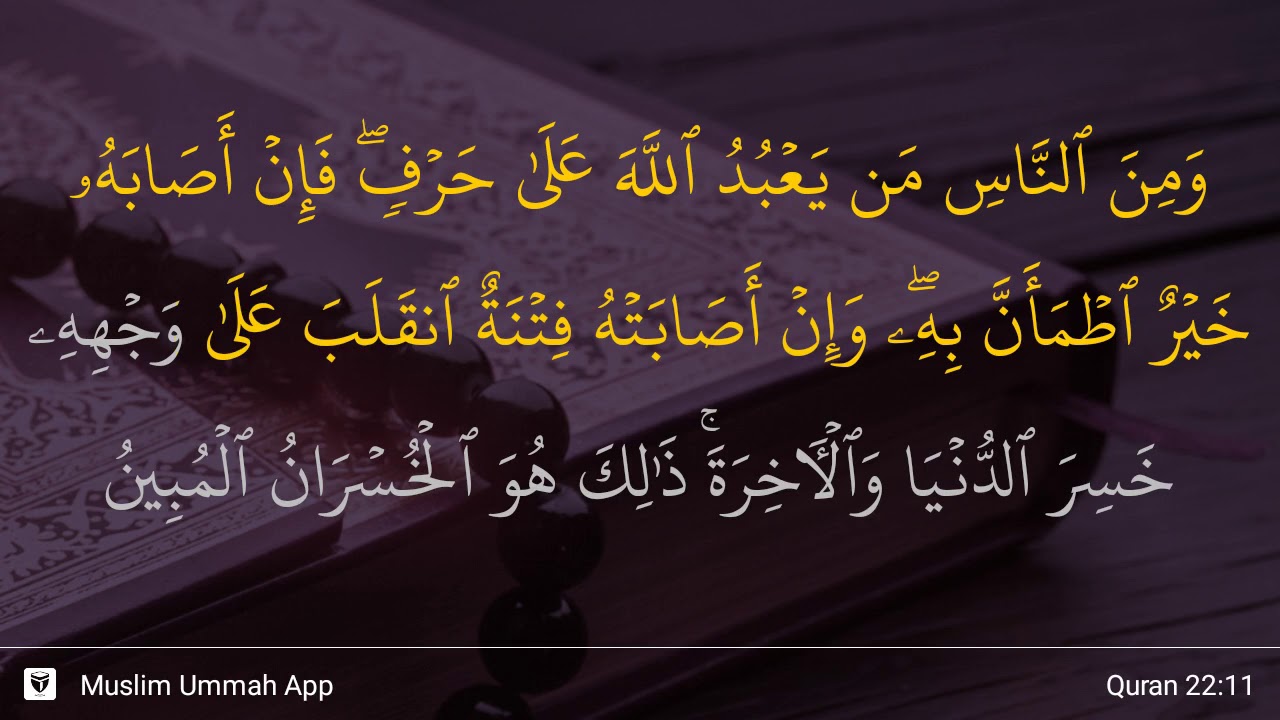 وَمِنَ ٱلنَّاسِ مَن يَعۡبُدُ ٱللَّهَ عَلَىٰ حَرۡفٖۖ فَإِنۡ أَصَابَهُۥ
خَيۡرٌ ٱطۡمَأَنَّ بِهِۦۖ وَإِنۡ أَصَابَتۡهُ فِتۡنَةٌ ٱنقَلَبَ عَلَىٰ وَجۡهِهِۦ
خَسِرَ ٱلدُّنۡيَا وَٱلۡأٓخِرَةَۚ ذَٰلِكَ هُوَ ٱلۡخُسۡرَانُ ٱلۡمُبِينُ
Muslim Ummah App
Quran 22:11